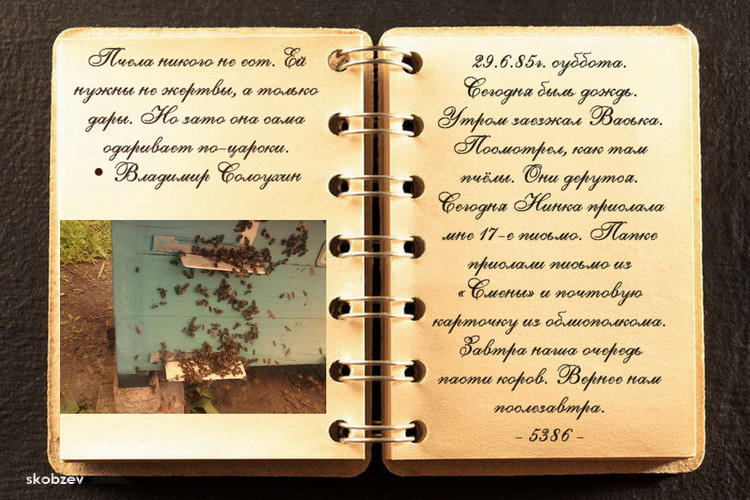 Пчела никого не ест. Ей
нужны не жертвы, а только
дары. Но зато она сама
одаривает по-царски.
• Владимир Солоухин
29.6.85г. суббота.
Сегодня быль дождь.
Утром заезжал Васька.
Посмотрел, как там
пчёлы. Они дерутся.
Сегодня Нинка прислала
мне 17-е письмо. Папке
прислали письмо из
«Смены» и почтовую
карточку из облисполкома.
Завтра наша очередь
пасти коров. Вернее нам
послезавтра.
- 5386 -
skobzev